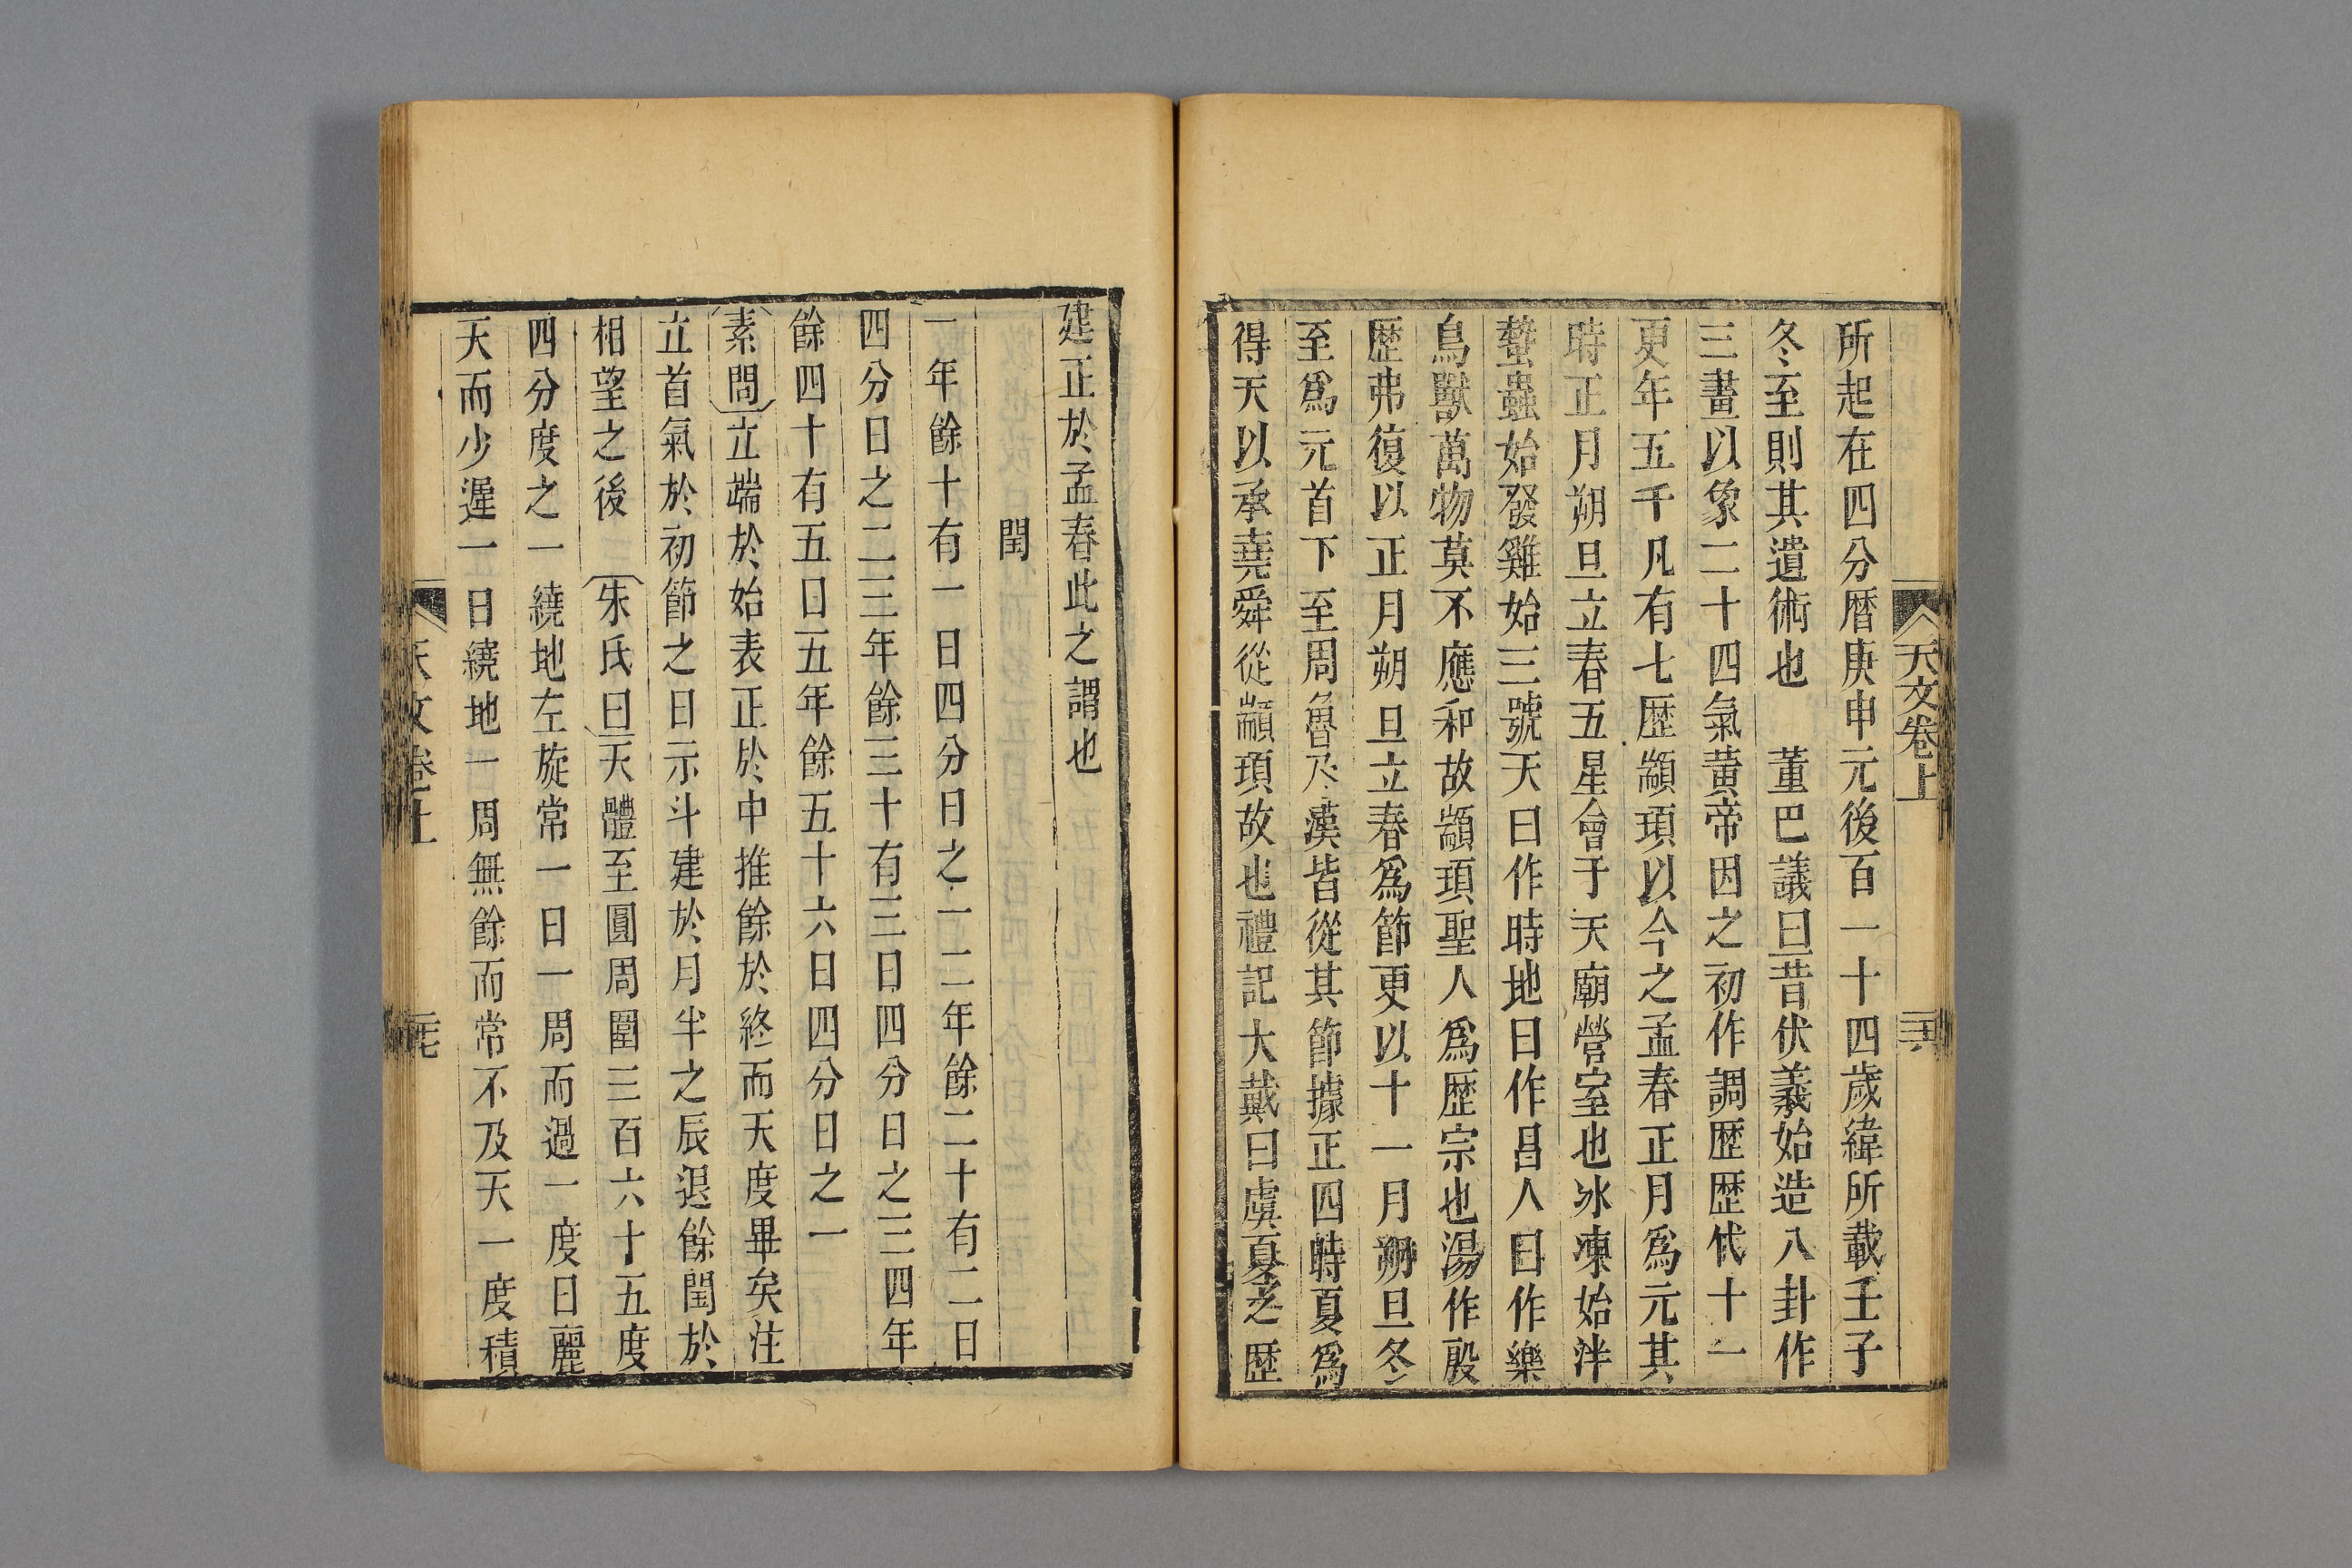 天文卷上
三六
所起在四分暦庚申元後百一十四歲緯所載壬子
冬至則其遺術也　董巴議曰昔伏羲始造八卦作
三畫以象二十四氣黄帝因之初作調歴歴代十一
更年五千凡有七歴顓頊以今之孟春正月爲元其
時正月朔旦立春五星會于天廟營室也冰凍始泮
蟄蟲始發雞始三號天曰作時地曰作昌人曰作樂
鳥獸萬物莫不應和故顓頊聖人爲歴宗也湯作殷
歴弗復以正月朔旦立春爲節更以十一月朔旦冬
至爲元首下至周魯及漢皆從其節據正四時夏爲
得天以承堯舜從顓頊故也禮記大戴曰虞夏之歴
建正於孟春此之謂也
閏
一年餘十有一日四分日之一二年餘二十有二日
四分日之二三年餘三十有三日四分日之三四年
餘四十有五日五年餘五十六日四分日之一
素問立端於始表正於中推餘於終而天度畢矣注
立首氣於初節之日示斗建於月半之辰退餘閏於
相望之後　朱氏曰天體至圓周圍三百六十五度
四分度之一繞地左旋常一日一周而過一度日麗
天而少遲一日繞地一周無餘而常不及天一度積
天文卷上
三七